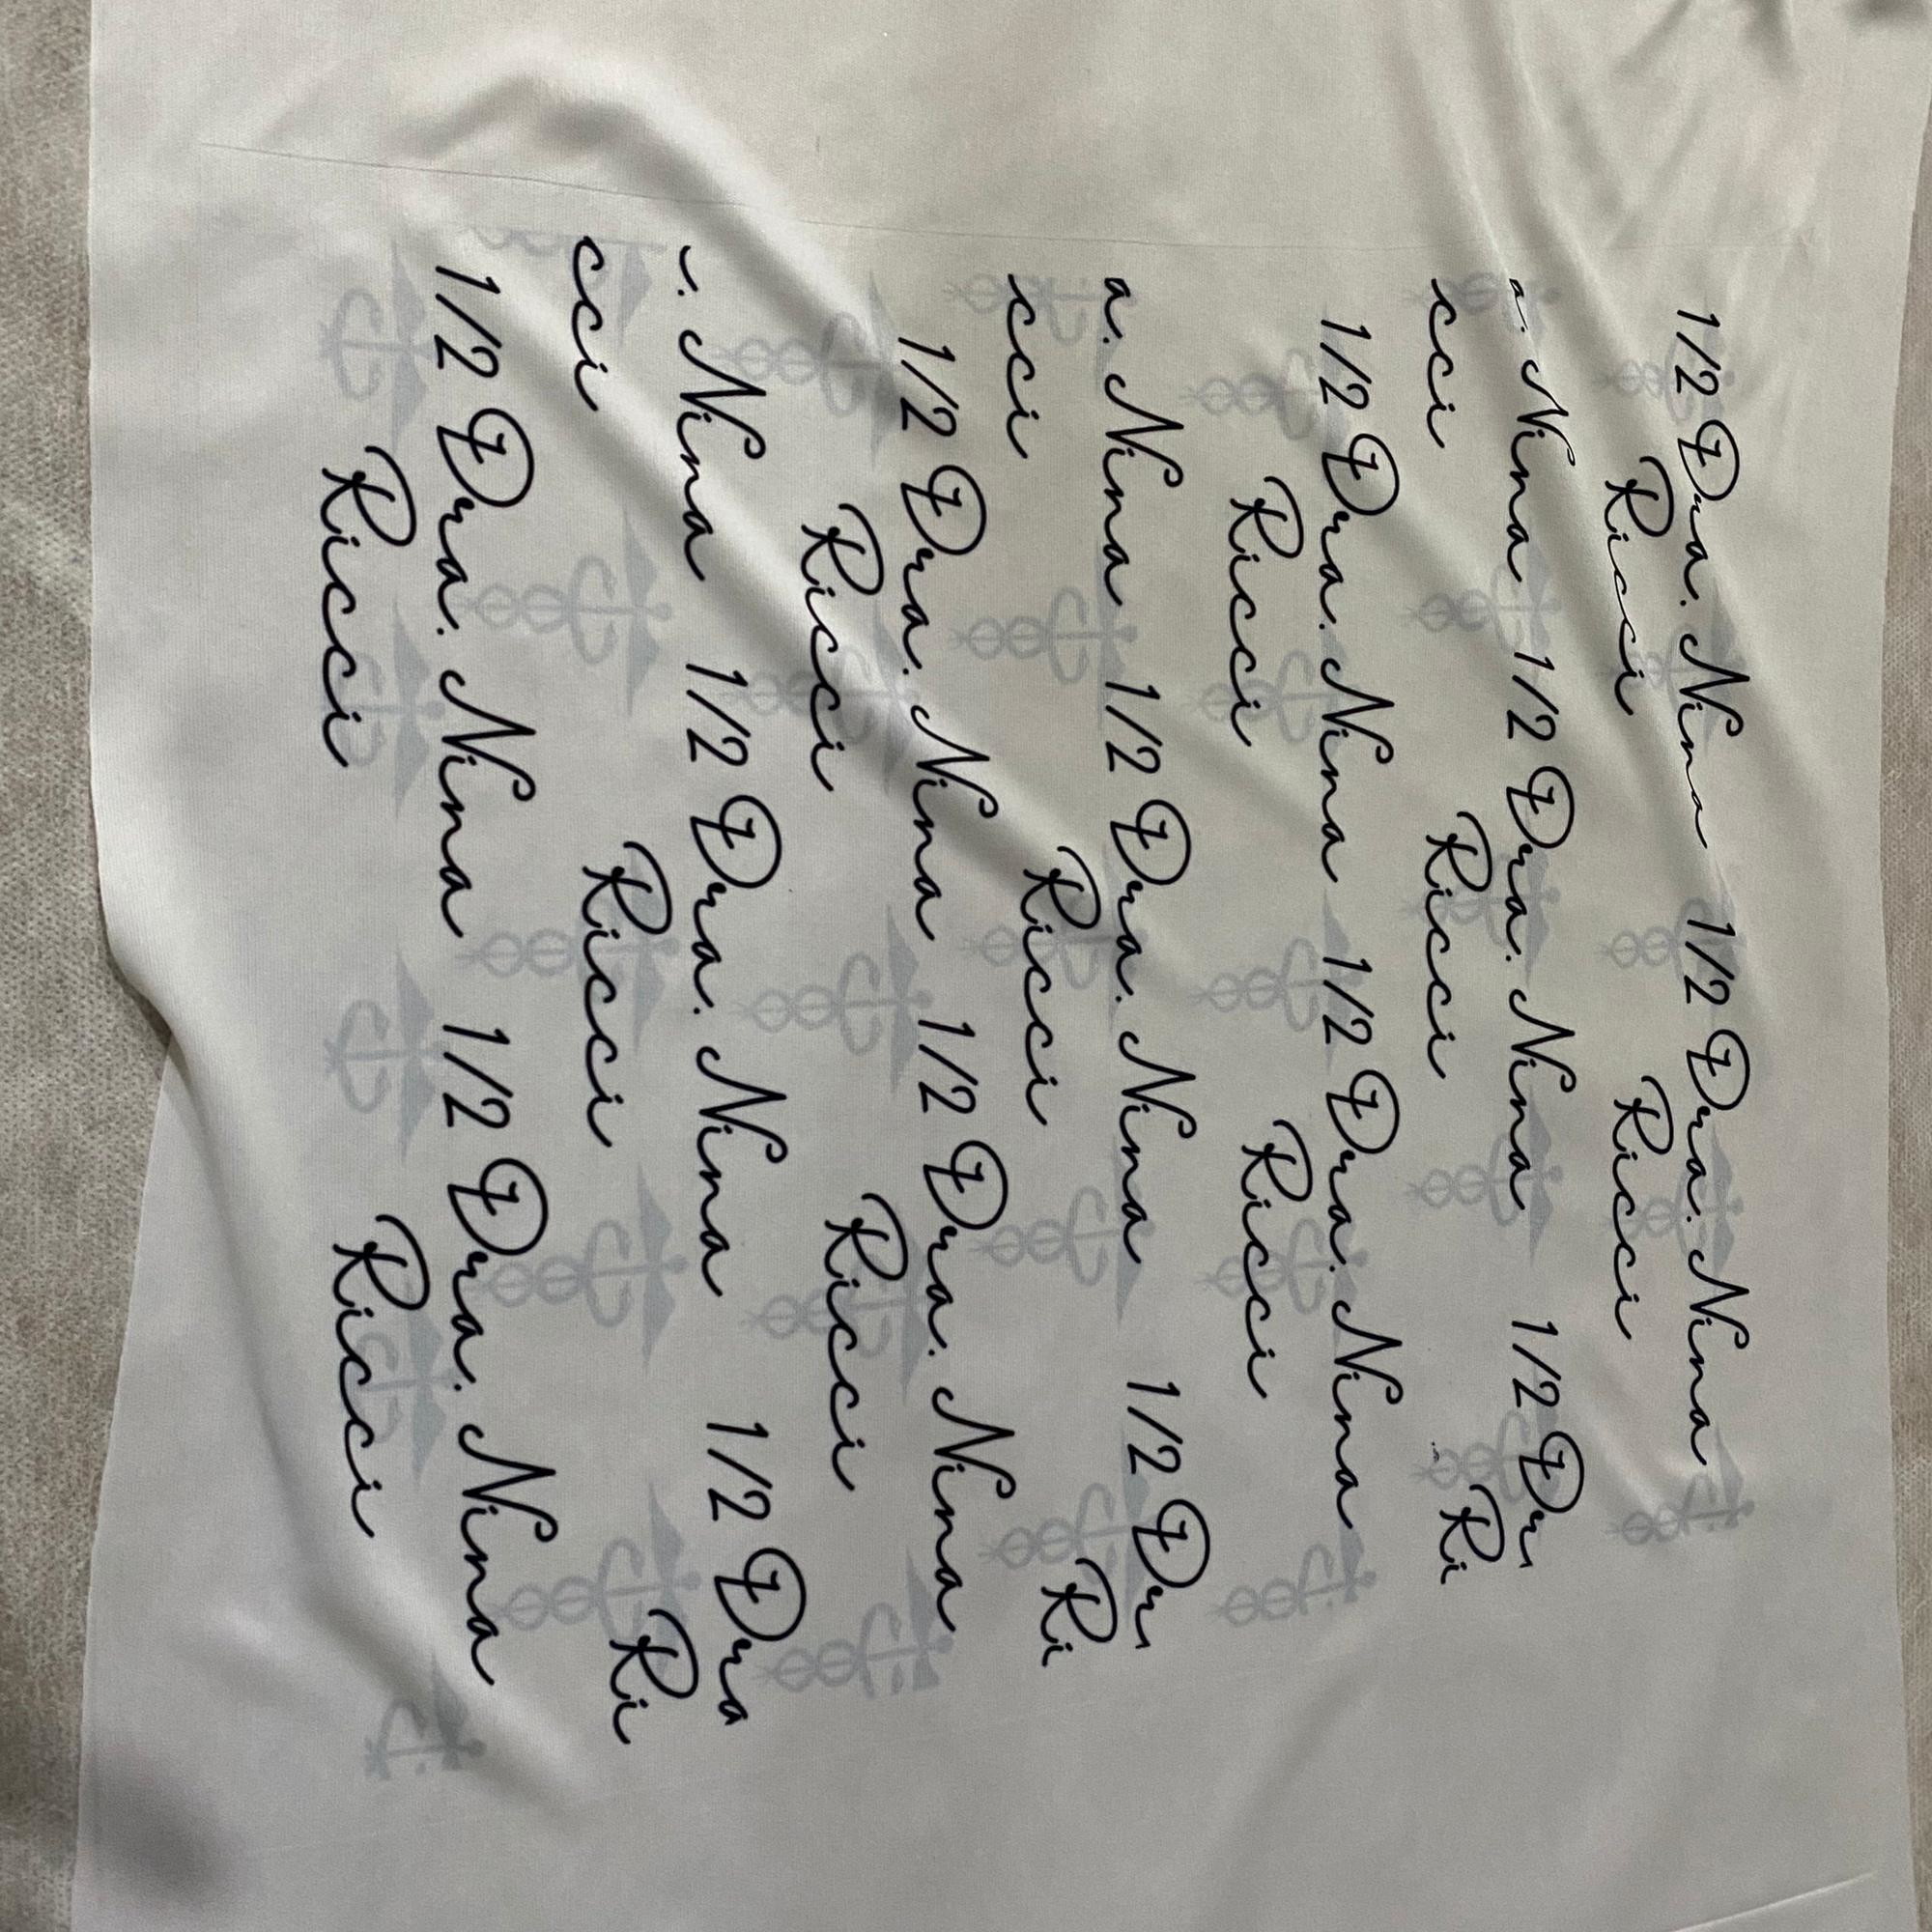 1/2 Dra. Nina 1/2 Dra. Nina
Ricci Ricci
a. Nina 1/2 Dra. Nina 1/2 Dr
cci Ricci Ri
1/2 Dra. Nina 1/2 Dra. Nina
Ricci Ricci
a. Nina 1/2 Dra. Nina 1/2 Dr
cci Ricci Ri
1/2 Dra. Nina 1/2 Dra. Nina
Ricci Ricci
. Nina 1/2 Dra. Nina 1/2 Dra
cci Ricci Ri
1/2 Dra. Nina 1/2 Dra. Nina
Ricci Ricci